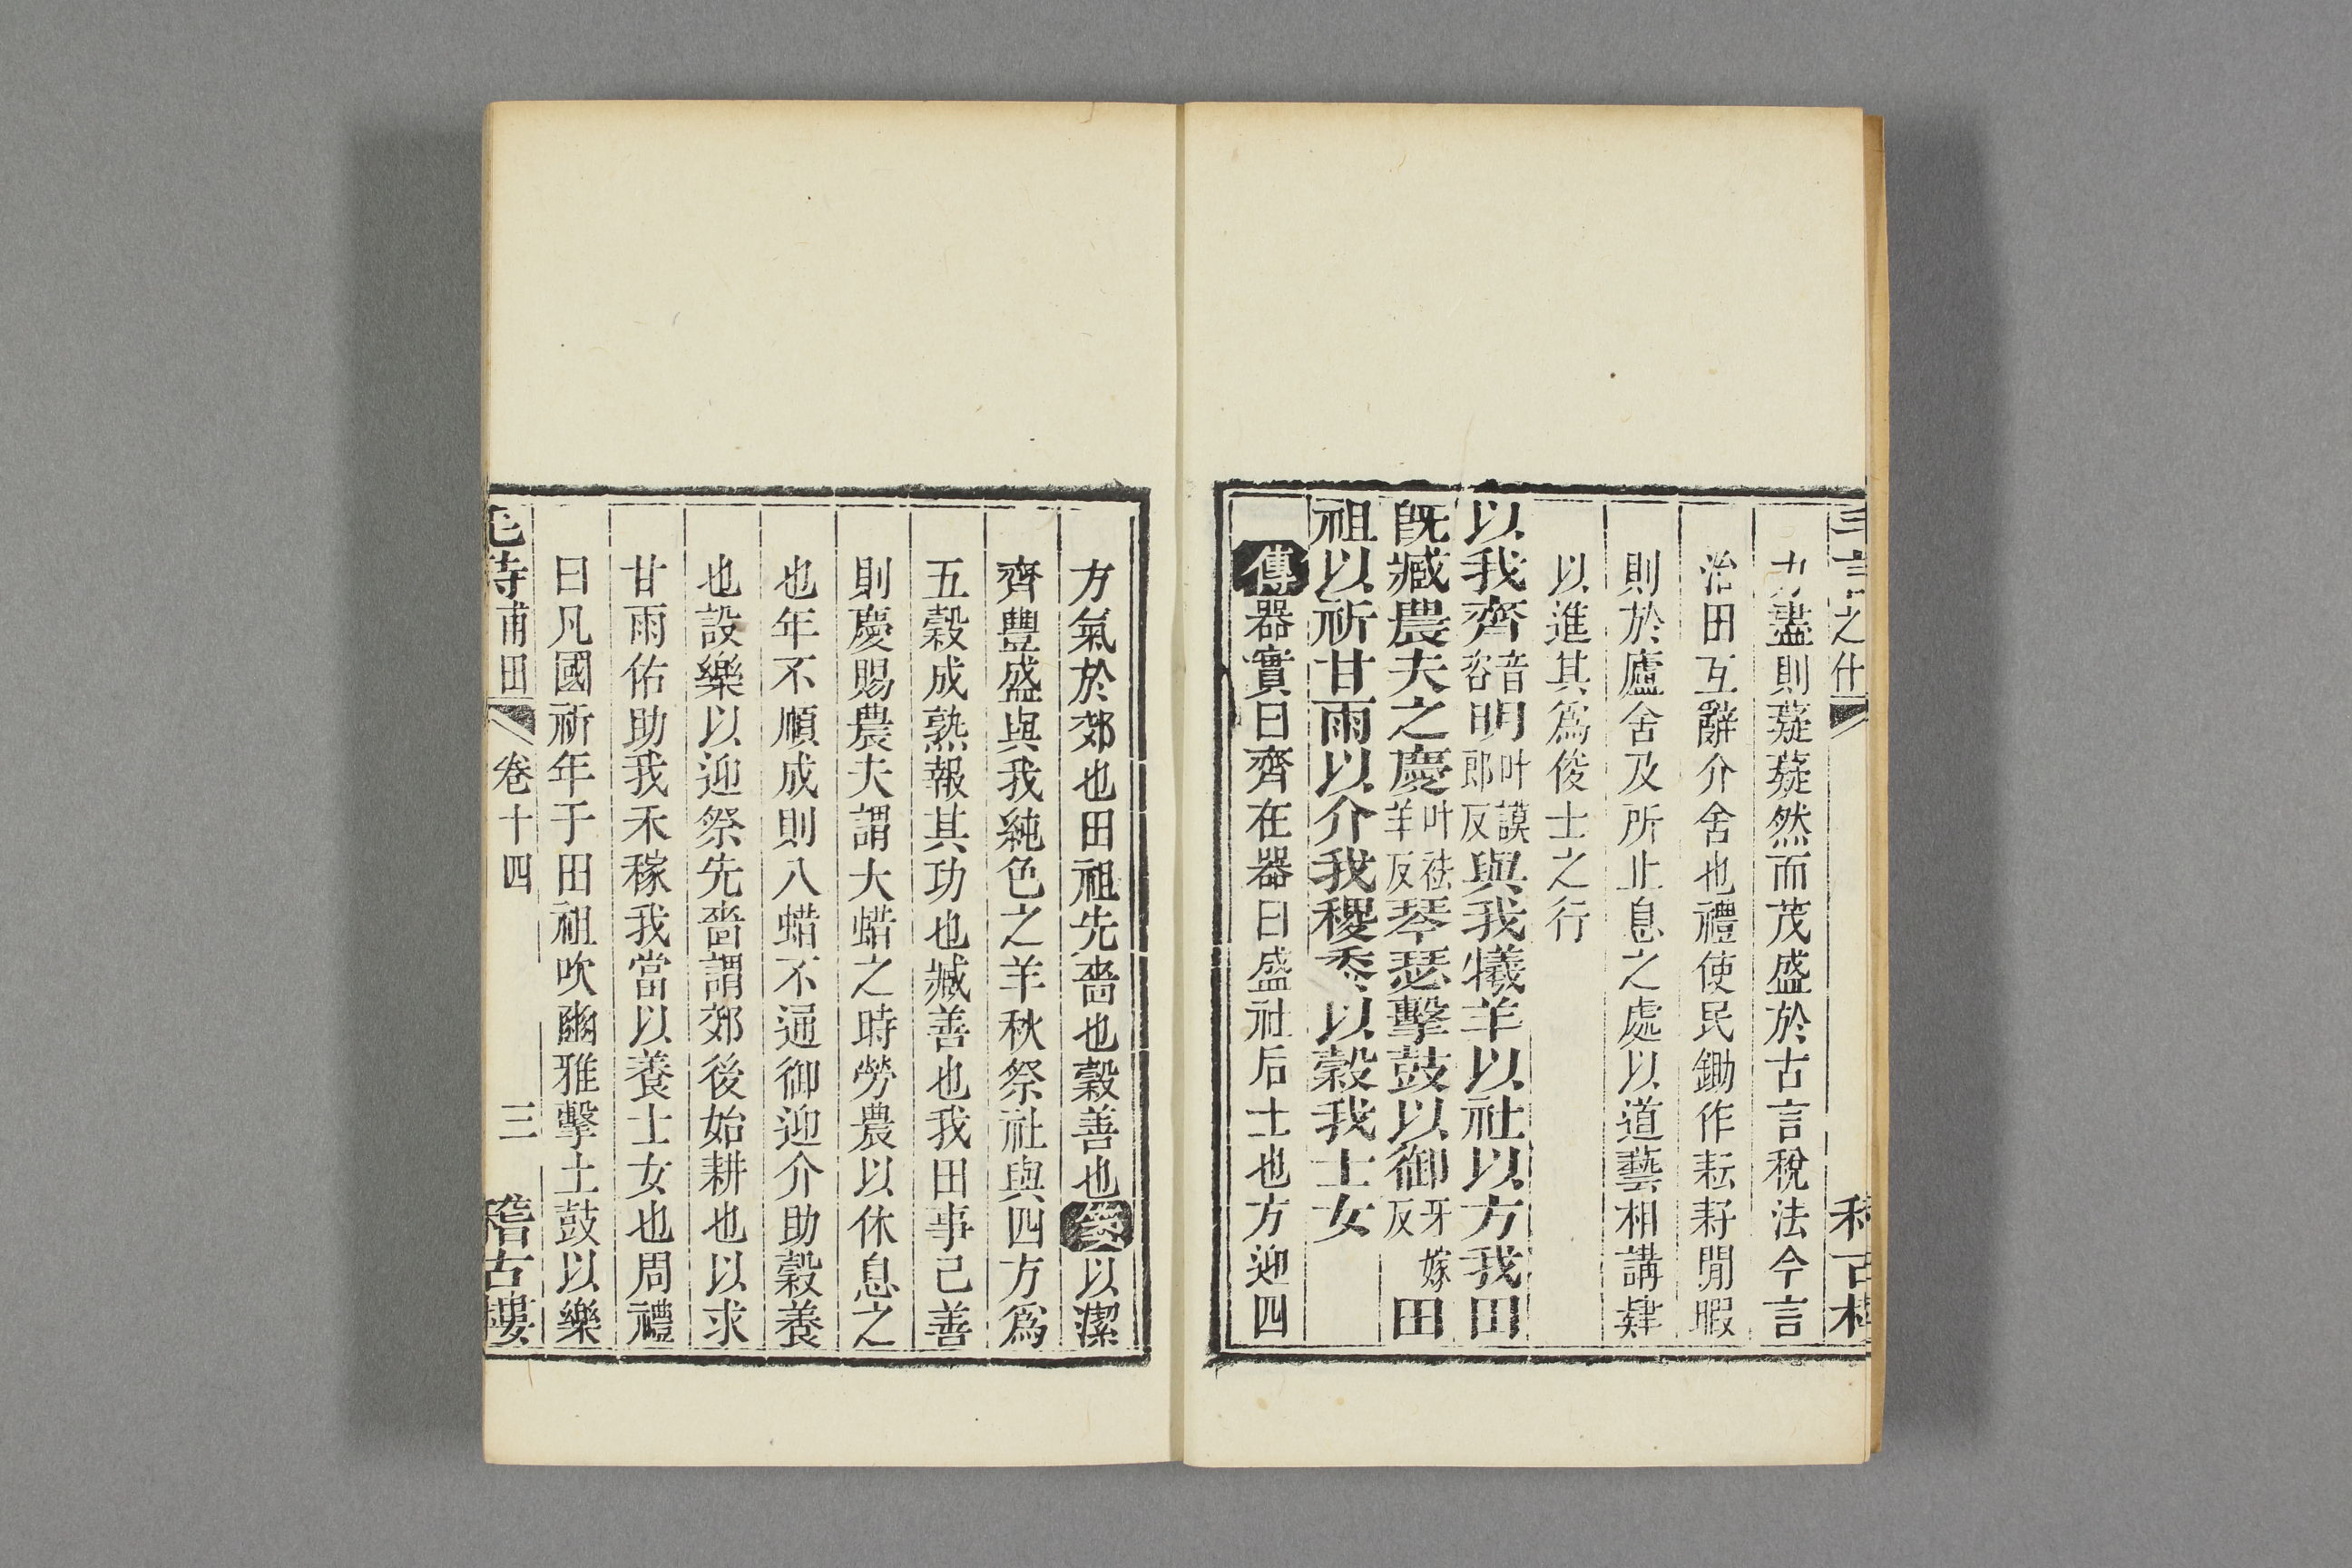 之什
力盡則薿薿然而茂盛於古言稅法今言
治田互辭介舍也禮使民鋤作耘耔閒暇
則於廬舍及所止息之處以道藝相講肄
以進其爲俊士之行
以我齊音咨明叶謨郎反與我犧羊以社以方我田
旣臧農夫之慶叶袪羊反琴瑟擊鼓以御牙嫁反田
祖以祈甘雨以介我稷黍以穀我士女
傳器實曰齊在器曰盛社后土也方迎四
方氣於郊也田祖先嗇也穀善也箋以潔
齊豐盛與我純色之羊秋祭社與四方爲
五穀成熟報其功也臧善也我田事已善
則慶賜農夫謂大蜡之時勞農以休息之
也年不順成則八蜡不通御迎介助穀養
也設樂以迎祭先嗇謂郊後始耕也以求
甘雨佑助我禾稼我當以養士女也周禮
曰凡國祈年于田祖吹豳雅擊土鼓以樂
毛詩甫田 卷十四 三 稽古樓